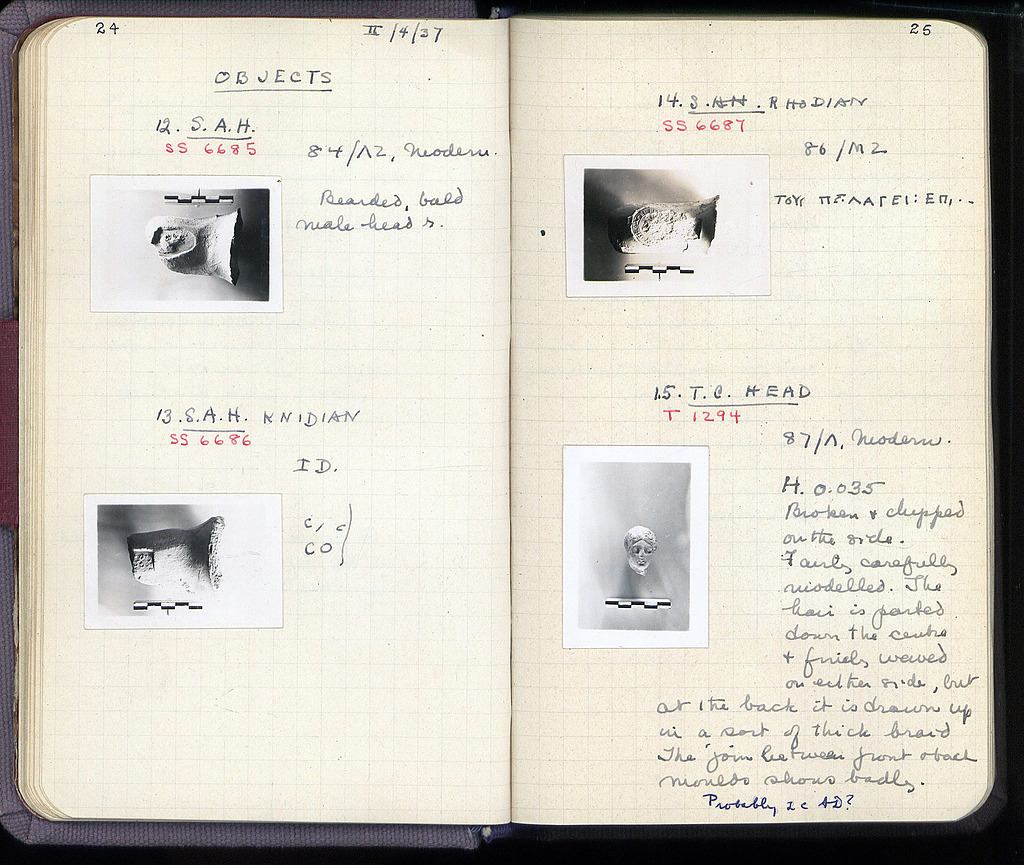 24
II/4/37
OBJECTS
12. S.A.H.
SS 6685
84/ΛΖ, Modern.
Bearded, bald
male head r.
13. S.A.H. KNIDIAN
SS 6686
ID.
25
14. S.AH. RHODIAN
SS 6687
86/MZ
15. T.C. HEAD
T 1294
87/Λ, Modern.
H. 0.035
Broken & chipped
on the side.
Fairly carefully
modelled. The
hair is parted
down the centre
& finely waved
on either side, but
at the back it is drawn up
in a sort of thick braid
The join between front & back
moulds shows badly.
Probably 2 c AD?